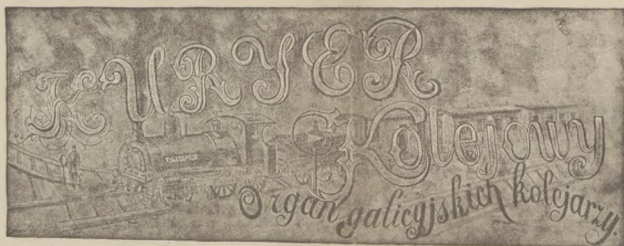 KURYER
Kolejowy
Organ galicyjskich kolejarzy.